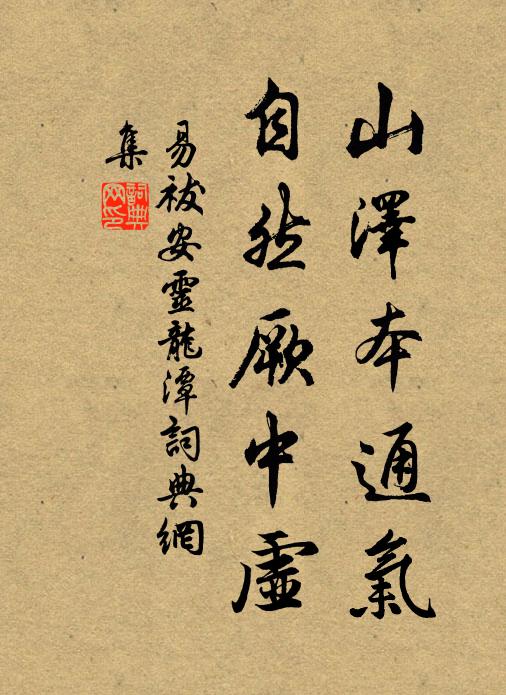 山澤本通氣
自然厥中虛
易祓安靈龍潭詞典網
集
詞典
网印